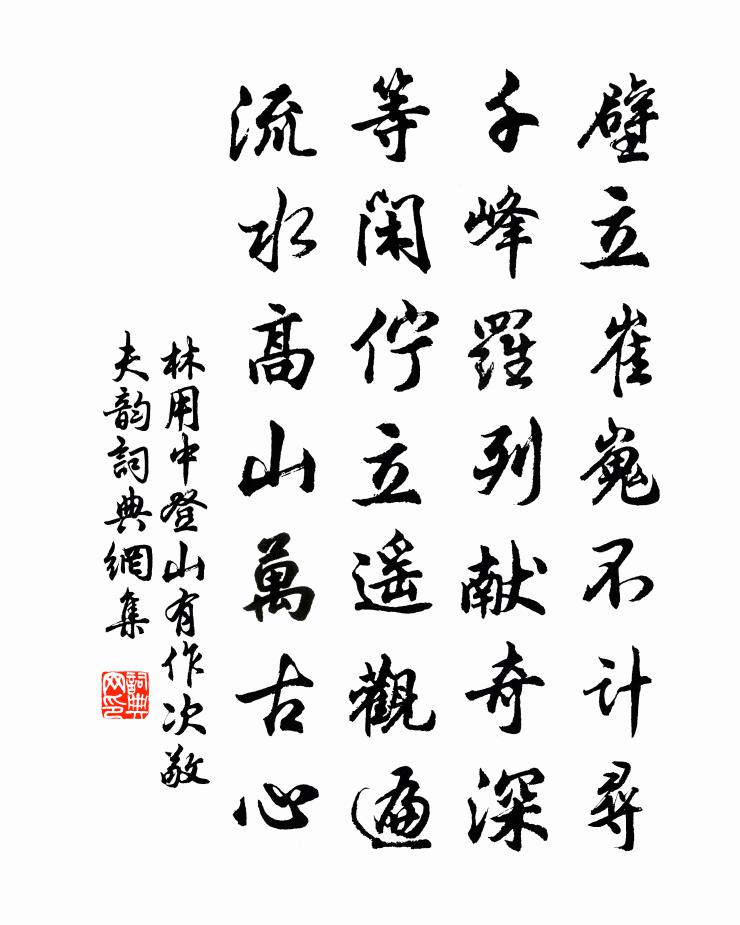 壁立崔嵬不計尋
千峰羅列献奇深
等閑佇立遥觀遍
流水高山萬古心
林用中登山有作次敬
夫韵詞典網集
詞典
网印